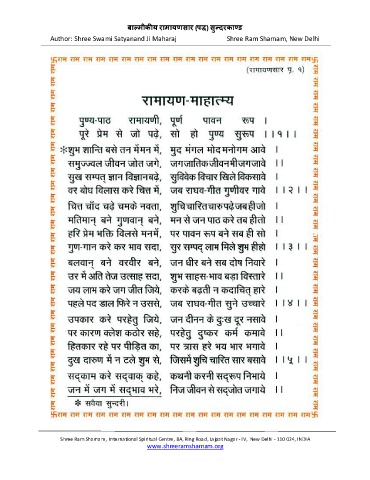 बाल्मीकीय रामायणसार (पद्य) सुन्दरकाण्ड
Author: Shree Swami Satyanand Ji Maharaj Shree Ram Sharnam, New Delhi
राम राम राम राम राम राम राम राम राम राम राम राम राम राम राम राम राम
(रामायणसार पृ. १)
रामायण-माहात्म्य
पुण्य-पाठ रामायणी, पूर्ण पावन रूप ।
पूरे प्रेम से जो पढ़े, सो हो पुण्य सुरूप ।।१।।
*शुभ शान्ति बसे तन में मन में, मुद मंगल मोद मनोगम आवे ।
समुज्ज्वल जीवन जोत जगे, जग जातिक जीवन भी जग जावे ।।
सुख सम्पत् ज्ञान विज्ञान बढ़े, सुविवेक विचार खिले विकसावे ।
वर बोध विलास करे चित्त में, जब राघव-गीत गुणीवर गावे ।।२।।
चित्त चाँद चढ़े चमके नवता, शुचि चारित चारु पढ़े जब ही जो ।
मतिमान् बने गुणवान् बने, मन से जन पाठ करे तब ही तो ।।
हरि प्रेम भक्ति विलसे मनमें, पर पावन रूप बने सब ही सो ।
गुण-गान करे कर भाव सदा, सुर सम्पद् लाभ मिले शुभ ही हो ।।३।।
बलवान् बने वरवीर बने, जन धीर बने सब दोष निवारे ।
उर में अति तेज उत्साह सदा, शुभ साहस-भाव बड़ा विस्तारे ।।
जय लाभ करे जग जीत जिये, करके बढ़ती न कदाचित् हारे ।
पहले पद डाल फिरे न उससे, जब राघव-गीत सुने उच्चारे ।।४।।
उपकार करे परहेतु जिये, जन दीनन के दुःख दूर नसावे ।
पर कारण क्लेश कठोर सहे, परहेतु दुष्कर कर्म कमावे ।।
हितकार रहे पर पीड़ित का, पर त्रास हरे भय भार भगावे ।
दुख दारुण में न टले शुभ से, जिसमें शुचि चारित सार बसावे ।।५।।
सद्काम करे सद्वाक् कहे, कथनी करनी सद्रूप निभाये ।
जन में जग में सद्भाव भरे, निज जीवन से सद्जोत जगाये ।।
* सवैया सुन्दरी।
राम राम राम राम राम राम राम राम राम राम राम राम राम राम राम राम राम
Shree Ram Sharnam, International Spiritual Centre, 8A, Ring Road, Lajpat Nagar - IV, New Delhi - 110 024, INDIA
www.shreeramsharnam.org